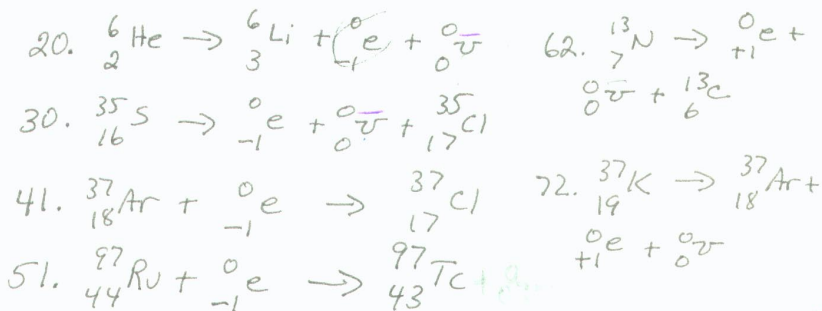 20. ⁶₂He → ⁶₃Li + ⁰₋₁e + ⁰₀v̅
30. ³⁵₁₆S → ⁰₋₁e + ⁰₀v̅ + ³⁵₁₇Cl
41. ³⁷₁₈Ar + ⁰₋₁e → ³⁷₁₇Cl
51. ⁹⁷₄₄Ru + ⁰₋₁e → ⁹⁷₄₃Tc
62. ¹³₇N → ⁰₊₁e +
⁰₀v + ¹³₆C
72. ³⁷₁₉K → ³⁷₁₈Ar +
⁰₊₁e + ⁰₀v